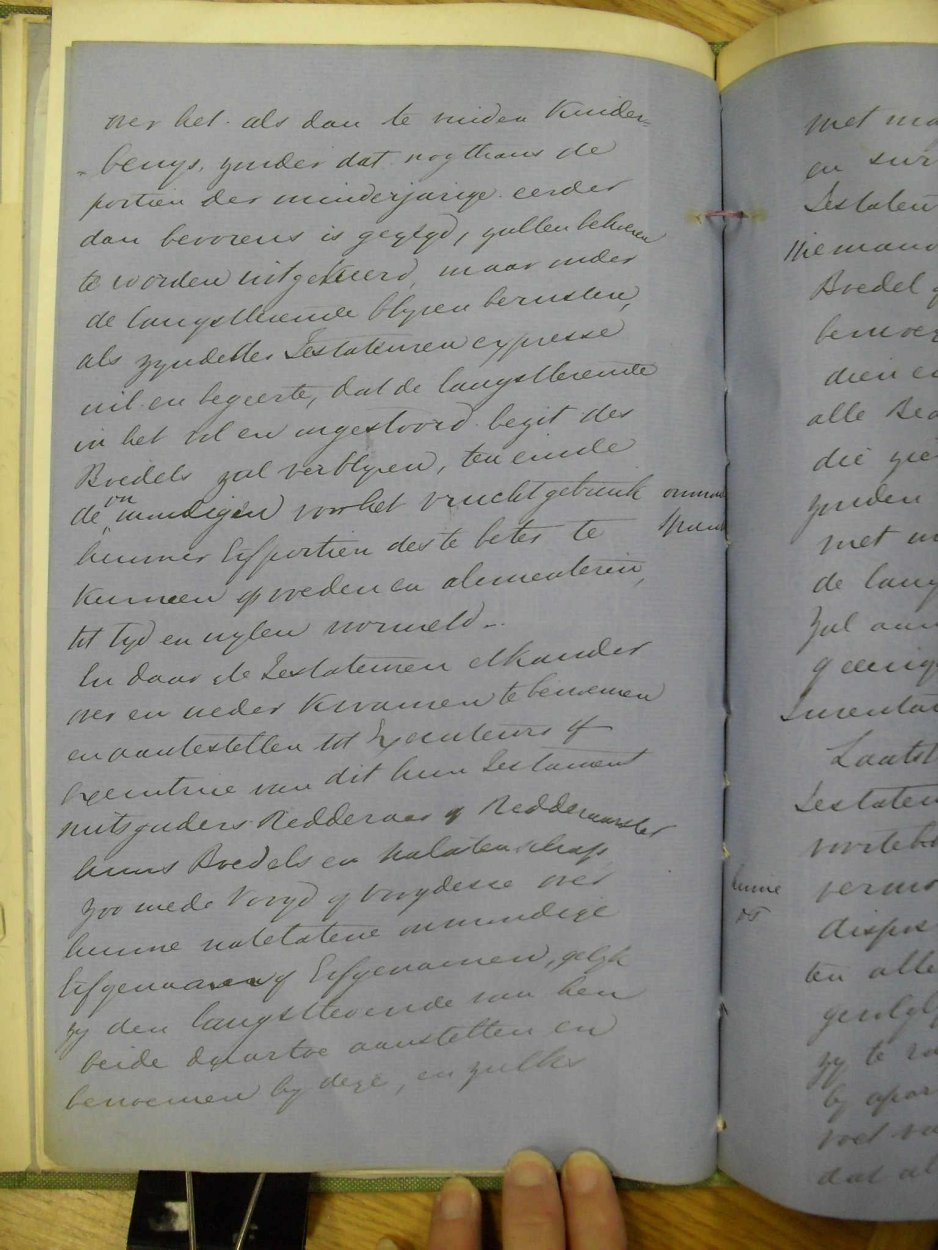 over het als dan te vinden Kinder=
=bewys, zonder dat nogthans de
portien der minderjarige eerder
dan bevorens is gezegd, zullen behoeven
te worden uitgekeerd, maar onder
de langstlevende blyven berusten,
als zynde der Testateuren expresse
wil en begeerte, dat de langstlevende
in het vol en ongestoord bezit des
Boedels zal verblyven, ten einde
de onmundigen voor het vruchtgebruik
hunner Erfportien des te beter te
kunnen opvoeden en alimenteren,
tot tyd en wylen voormeld.-
En daar de Testateuren elkander
over en weder kwamen te benoemen
en aantestellen tot Executeurs of
Executrice van dit hun Testament
mitsgaders Redderaar of Redderaarster
huns Boedels en nalatenschap
zoo mede Voogd of Voogdesse over
hunne natelatene onmundige
Erfgenaam of Erfgenamen, gelyk
zy den langstlevende van hen
beide daartoe aanstellen en
benoemen by deze, en zulks
met
en
Testateu
Niemand
Boedel
benoe
dien e
alle
die
zonden
met
de lang
Zal aan
geenig
Inventa
Laatst
Testateu
hunne
dispos
ten alle
zy te
by apar
dat al